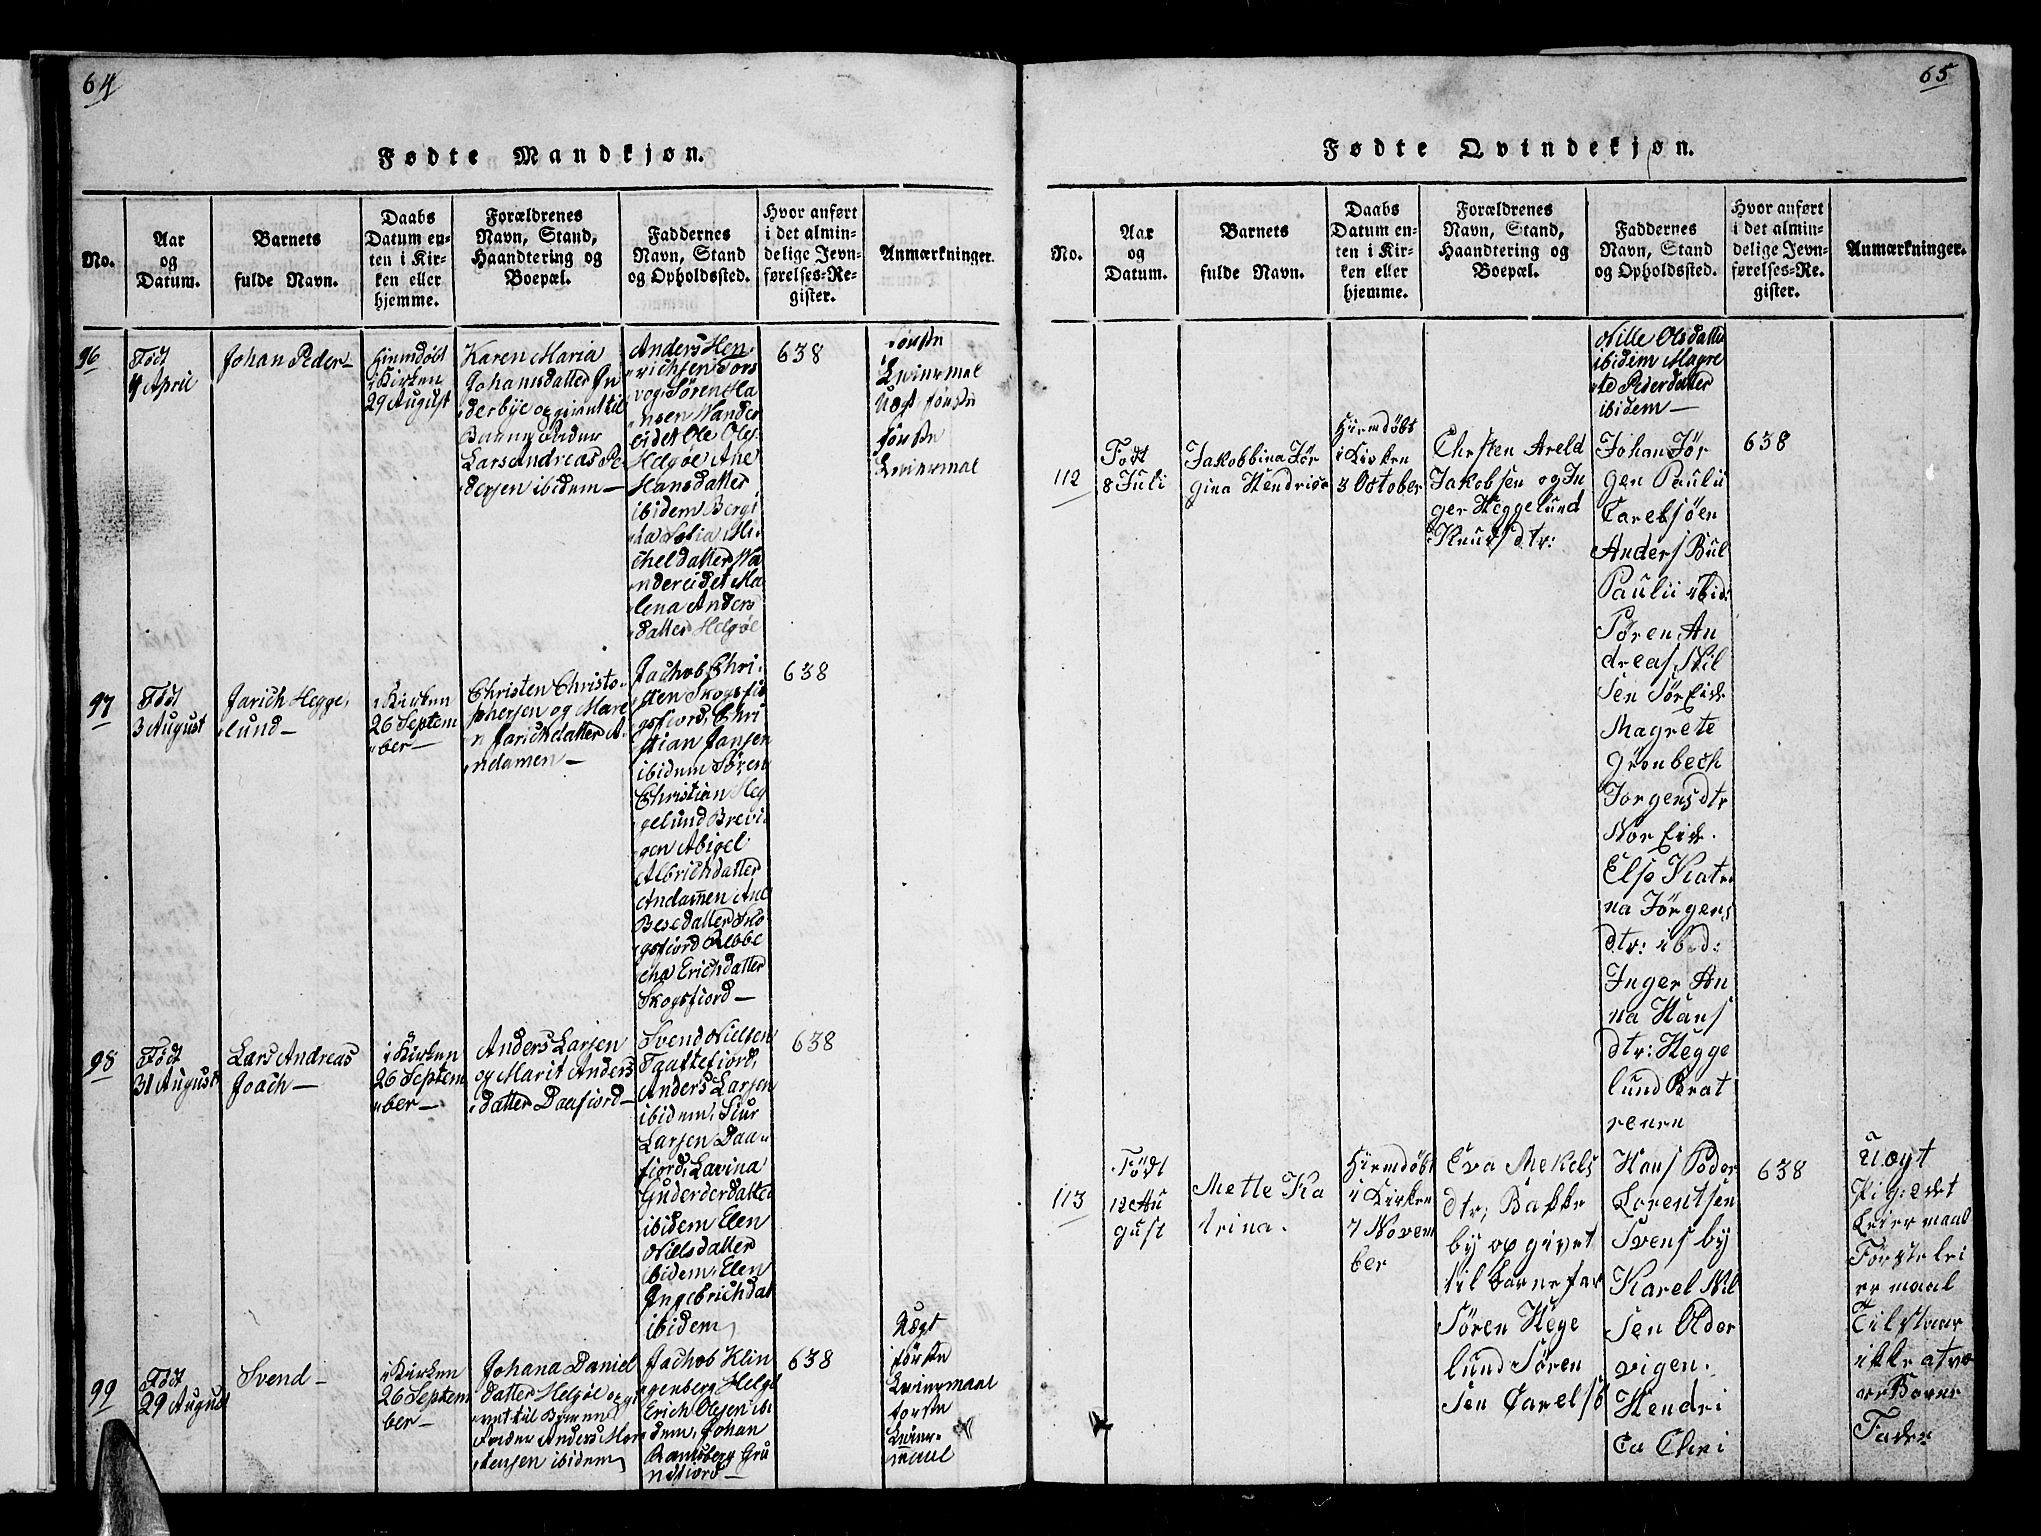 64
Fødte Mandkjøn.
No.
Aar
og
Datum.
Barnets
fulde Navn.
Daabs
Datum en-
ten i Kir-
ken eller
hjemme.
Forældrenes
Navn, Stand,
Haandtering og
Boepæl.
Faddernes
Navn, Stand
og Opholdssted.
Hvor anført
i det almin-
delige Jevn-
førelses-Re-
gister.
Anmærkninger.
96
Født
4 April
Johan Peder
Hiemdøbt
i Kirken
29 August
Karen Maria
Johansdatter In
derbye opgivet til
Barnefader
Lars Andreas Pe
dersen ibidem
Anders Hen
richsen Tors
vog Søren Ha
nsen Wander
eidet Ole Oles
Helgøe Ane
Hansdatter
ibidem Bergi
ta Sofia Mi
cheldatter Wa
ndereidet Ma
lena Anders
datter Helgøe
638
første
Leiermal
Uægt første
første
Leiermal
97
Født
3 August
Jarich Hegge
lund
i Kirken
26 Septem
ber
Christen Christo
phersen og Mare
n Jarichdatter A
ndamen
Jachob Chri
sten Skogsfio
gsfiord, Chri
stian Jansen
ibidem Søren
Christian Heg
gelund Brevi
gen Abigel
Albrichdatter
Andamen Ane
Besedatter Sko
gsfiord Rebbe
cha Erichdatter
Skogsfiord
638
98
Født
31 August
Lars Andreas
Joach
i Kirken
26 Septem
ber
Anders Larsen
og Marit Anders
datter Daafiord
Svend Nielsen
Taattefiord,
Anders Larsen
ibidem, Siur
Larsen Daa
fiord, Lavina
Guderderdatter
ibidem Elen
Nielsdatter
ibidem, Elen
Ingebrichdat
ibidem
638
99
Født
29 August
Svend
i Kirken
26 Septem
ber
Johana Daniel
datter Helgøe opgi
vet til Barne
fader Anders Mor
tensen ibidem
Jachob Klin
genberg Helgø
Erich Olesen ibi
dem, Johan
Ramsberg Gru
ndfiord
638
Uægt
første
Leiermaal
første
Leier
maal
65
Fødte Qvindekjøn.
No.
Aar
og
Datum.
Barnets
fulde Navn.
Daabs
Datum en-
ten i Kir-
ken eller
hjemme.
Forældrenes
Navn, Stand,
Haandtering og
Boepæl.
Faddernes
Navn, Stand
og Opholdssted.
Hvor anført
i det almin-
delige Jevn-
førelses-Re-
gister.
Anmærkninger.
Nille Olsdatter
ibidem Magre
te Pedersdatter
ibidem
112
Født
8 Juli
Jakobbina Jør
gina Hendrica
Hiemdøbt
i Kirken
3 October
Chrsten Areld
Jakobsen og In
ger Heggelund
Knuts dtr:
Johan Jør
gen Paulii
Carelsøen
Anders Bul
Paulii ibid:
Søren An
dreas Nil
sen Sør Eide
Magrete
Grönbech
Jorgens dtr
Nor Eide.
Else Katri
na Jørgens
dtr: ibid:
Inger An
na Hans
dtr: Hegge
lund Krat
renen
638
113
Født
12 Au
gust
Mette Ka
trina.
Hiemdøbt
i Kirken
7 Novem
ber
Eva Mekels
dtr, Bakke
by opgivet
til barnefar
Søren Hege
lund Søren
sen Carelsö
Hans Peder
Lorentsen
Svensby
Karel Nil
sen Older
vigen.
Hendri
ca Chri
638
Uægt
Pigedet
Leiermaal
Første lei
ermaal
Tilstaar
ikke at væ
re Barne
Fader